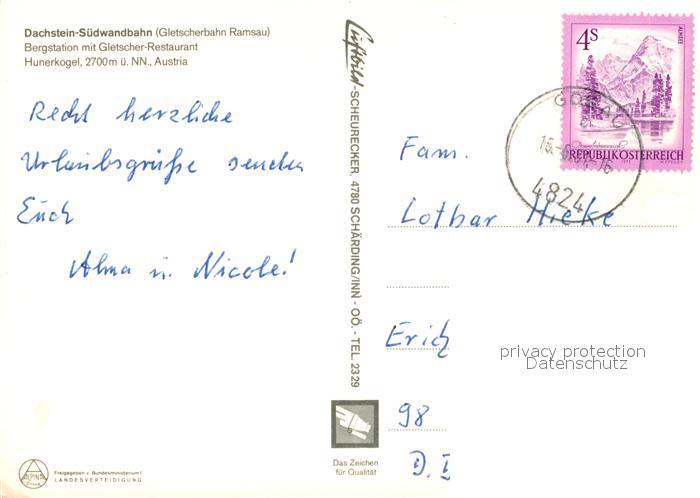 Dachstein-Südwandbahn (Gletscherbahn Ramsau)
Bergstation mit Gletscher-Restaurant
Hunerkogel, 2700 m ü. NN., Austria
Recht herzliche
Urlaubsgrüße senden
Euch
Alma u. Nicole!
Freigegeben v. Bundesministerium f.
LANDESVERTEIDIGUNG
ALPINE
Luftbild-SCHEURECKER, 4780 SCHÄRDING/INN - OÖ. - TEL. 23 29
Das Zeichen
für Qualität
4S
ALMSEE
REPUBLIK ÖSTERREICH
GOSAU
4824
Fam.
Lothar Hieke
Erich
98
D.
privacy protection
Datenschutz